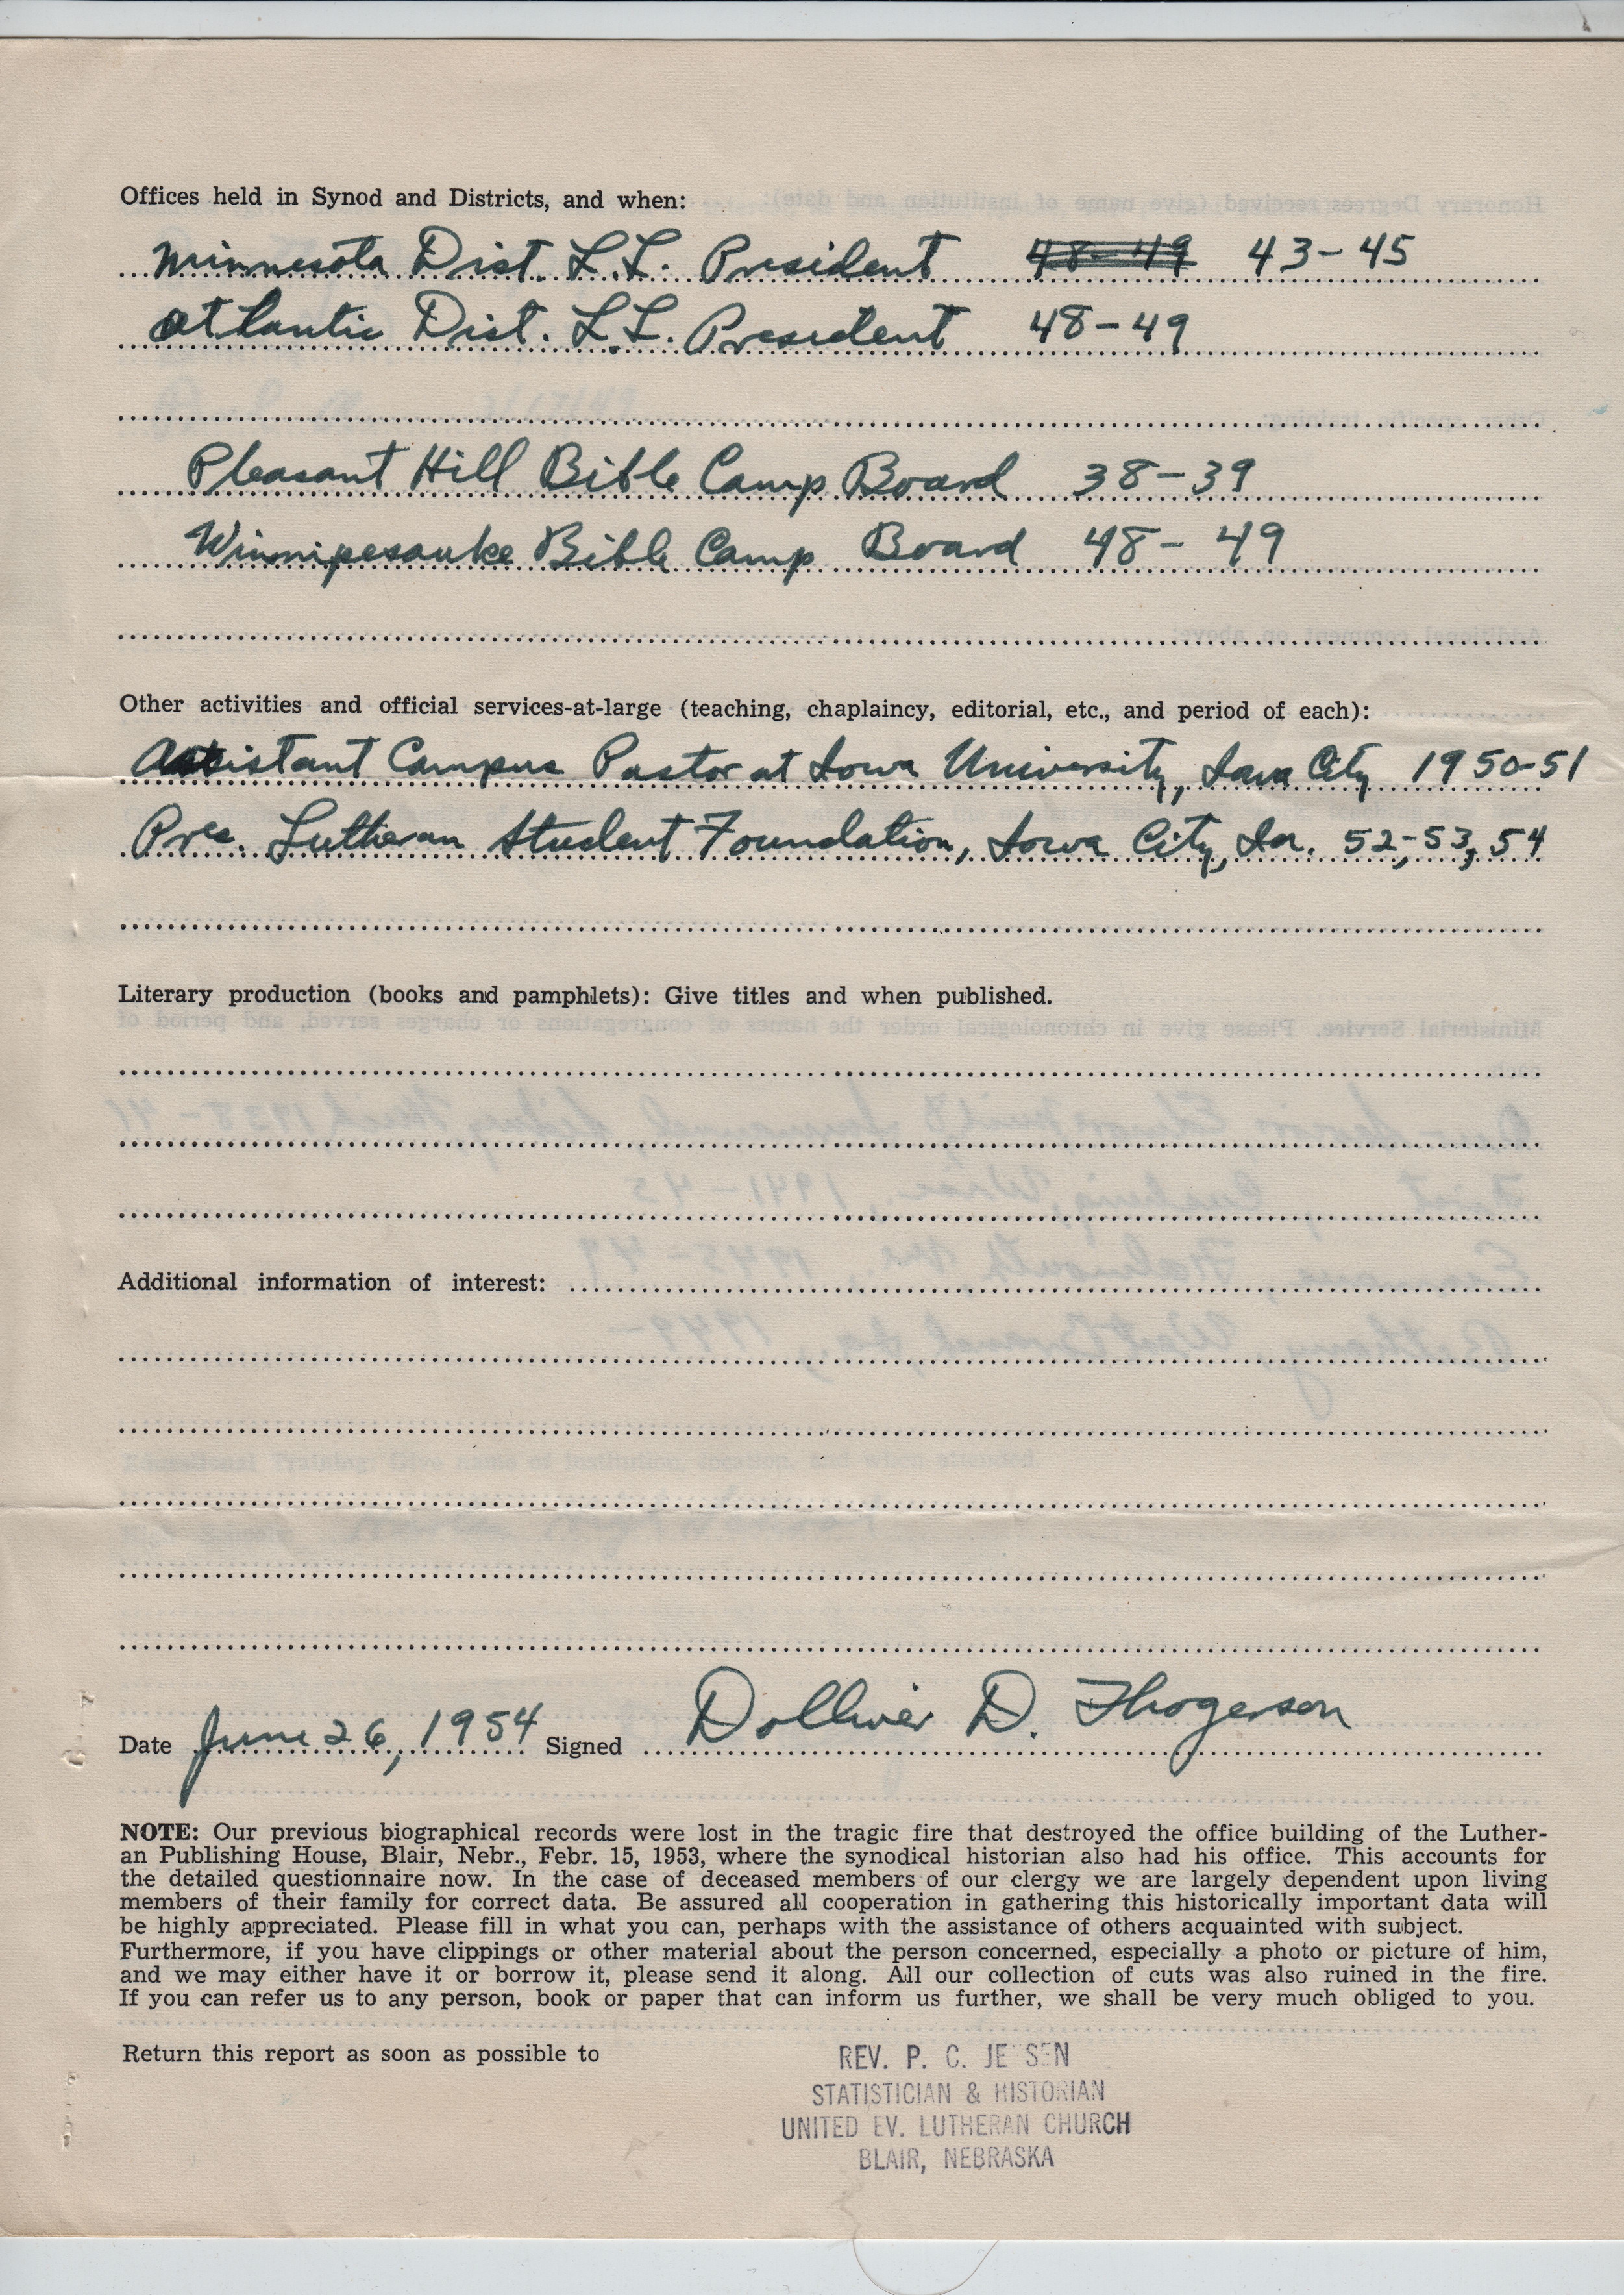 Offices held in Synod and Districts, and when:
Minnesota Dist. L.L. President 48-49 43-45
Atlantic Dist. L.L. President 48-49
Pleasant Hill Bible Camp Board 38-39
Winnipesauke Bible Camp Board 48-49
Other activities and official services-at-large (teaching, chaplaincy, editorial, etc., and period of each):
Assistant Campus Pastor at Iowa University, Iowa City 1950-51
Pres. Lutheran Student Foundation, Iowa City, Ia. 52,-53, 54
Literary production (books and pamphlets): Give titles and when published.
Additional information of interest:
Date June 26, 1954 Signed Dolliver D. Thogerson
NOTE: Our previous biographical records were lost in the tragic fire that destroyed the office building of the Luther-
an Publishing House, Blair, Nebr., Febr. 15, 1953, where the synodical historian also had his office. This accounts for
the detailed questionnaire now. In the case of deceased members of our clergy we are largely dependent upon living
members of their family for correct data. Be assured all cooperation in gathering this historically important data will
be highly appreciated. Please fill in what you can, perhaps with the assistance of others acquainted with subject.
Furthermore, if you have clippings or other material about the person concerned, especially a photo or picture of him,
and we may either have it or borrow it, please send it along. All our collection of cuts was also ruined in the fire.
If you can refer us to any person, book or paper that can inform us further, we shall be very much obliged to you.
Return this report as soon as possible to
REV. P. C. JENSEN
STATISTICIAN & HISTORIAN
UNITED EV. LUTHERAN CHURCH
BLAIR, NEBRASKA